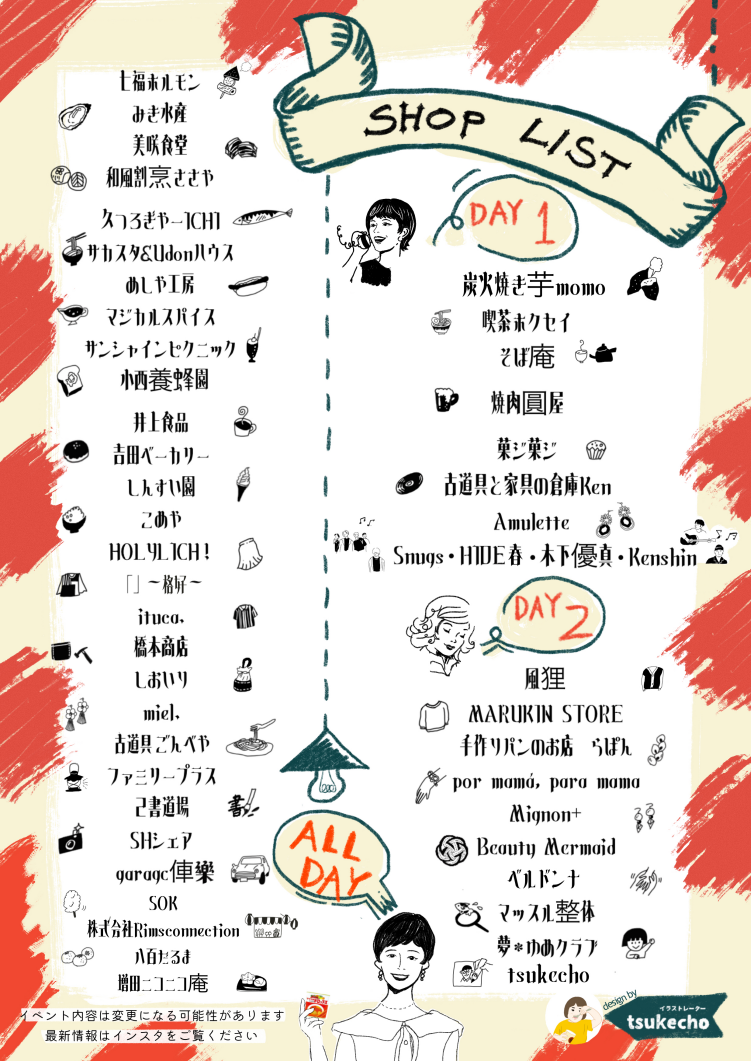 SHOP LIST
七福ホルモン
みき水産
美咲食堂
和風割烹ささや
久つろぎや-ICHI
サカスタ&Udonハウス
めしや工房
マジカルスパイス
サンシャインピクニック
小西養蜂園
井上食品
吉田ベーカリー
しんすい園
こめや
HOLYLICH!
「」〜格好〜
ituca.
橋本商店
しおいり
miel.
古道具ごんべや
ファミリープラス
己書道場
書
SHシェア
garage俥樂
SOK
株式会社Rimsconnection
八百だるま
増田ニコニコ庵
ALL
DAY
DAY 1
炭火焼き芋momo
喫茶ホクセイ
そば庵
焼肉圓屋
菓ジ菓ジ
古道具と家具の倉庫Ken
Amulette
Snugs・HIDE春・木下優真・Kenshin
DAY 2
風狸
MARUKIN STORE
手作りパンのお店 らぱん
por mamá, para mama
Mignon+
Beauty Mermaid
ベルドンナ
マッスル整体
夢*ゆめクラブ
tsukecho
イベント内容は変更になる可能性があります
最新情報はインスタをご覧ください
design by
イラストレーター
tsukecho